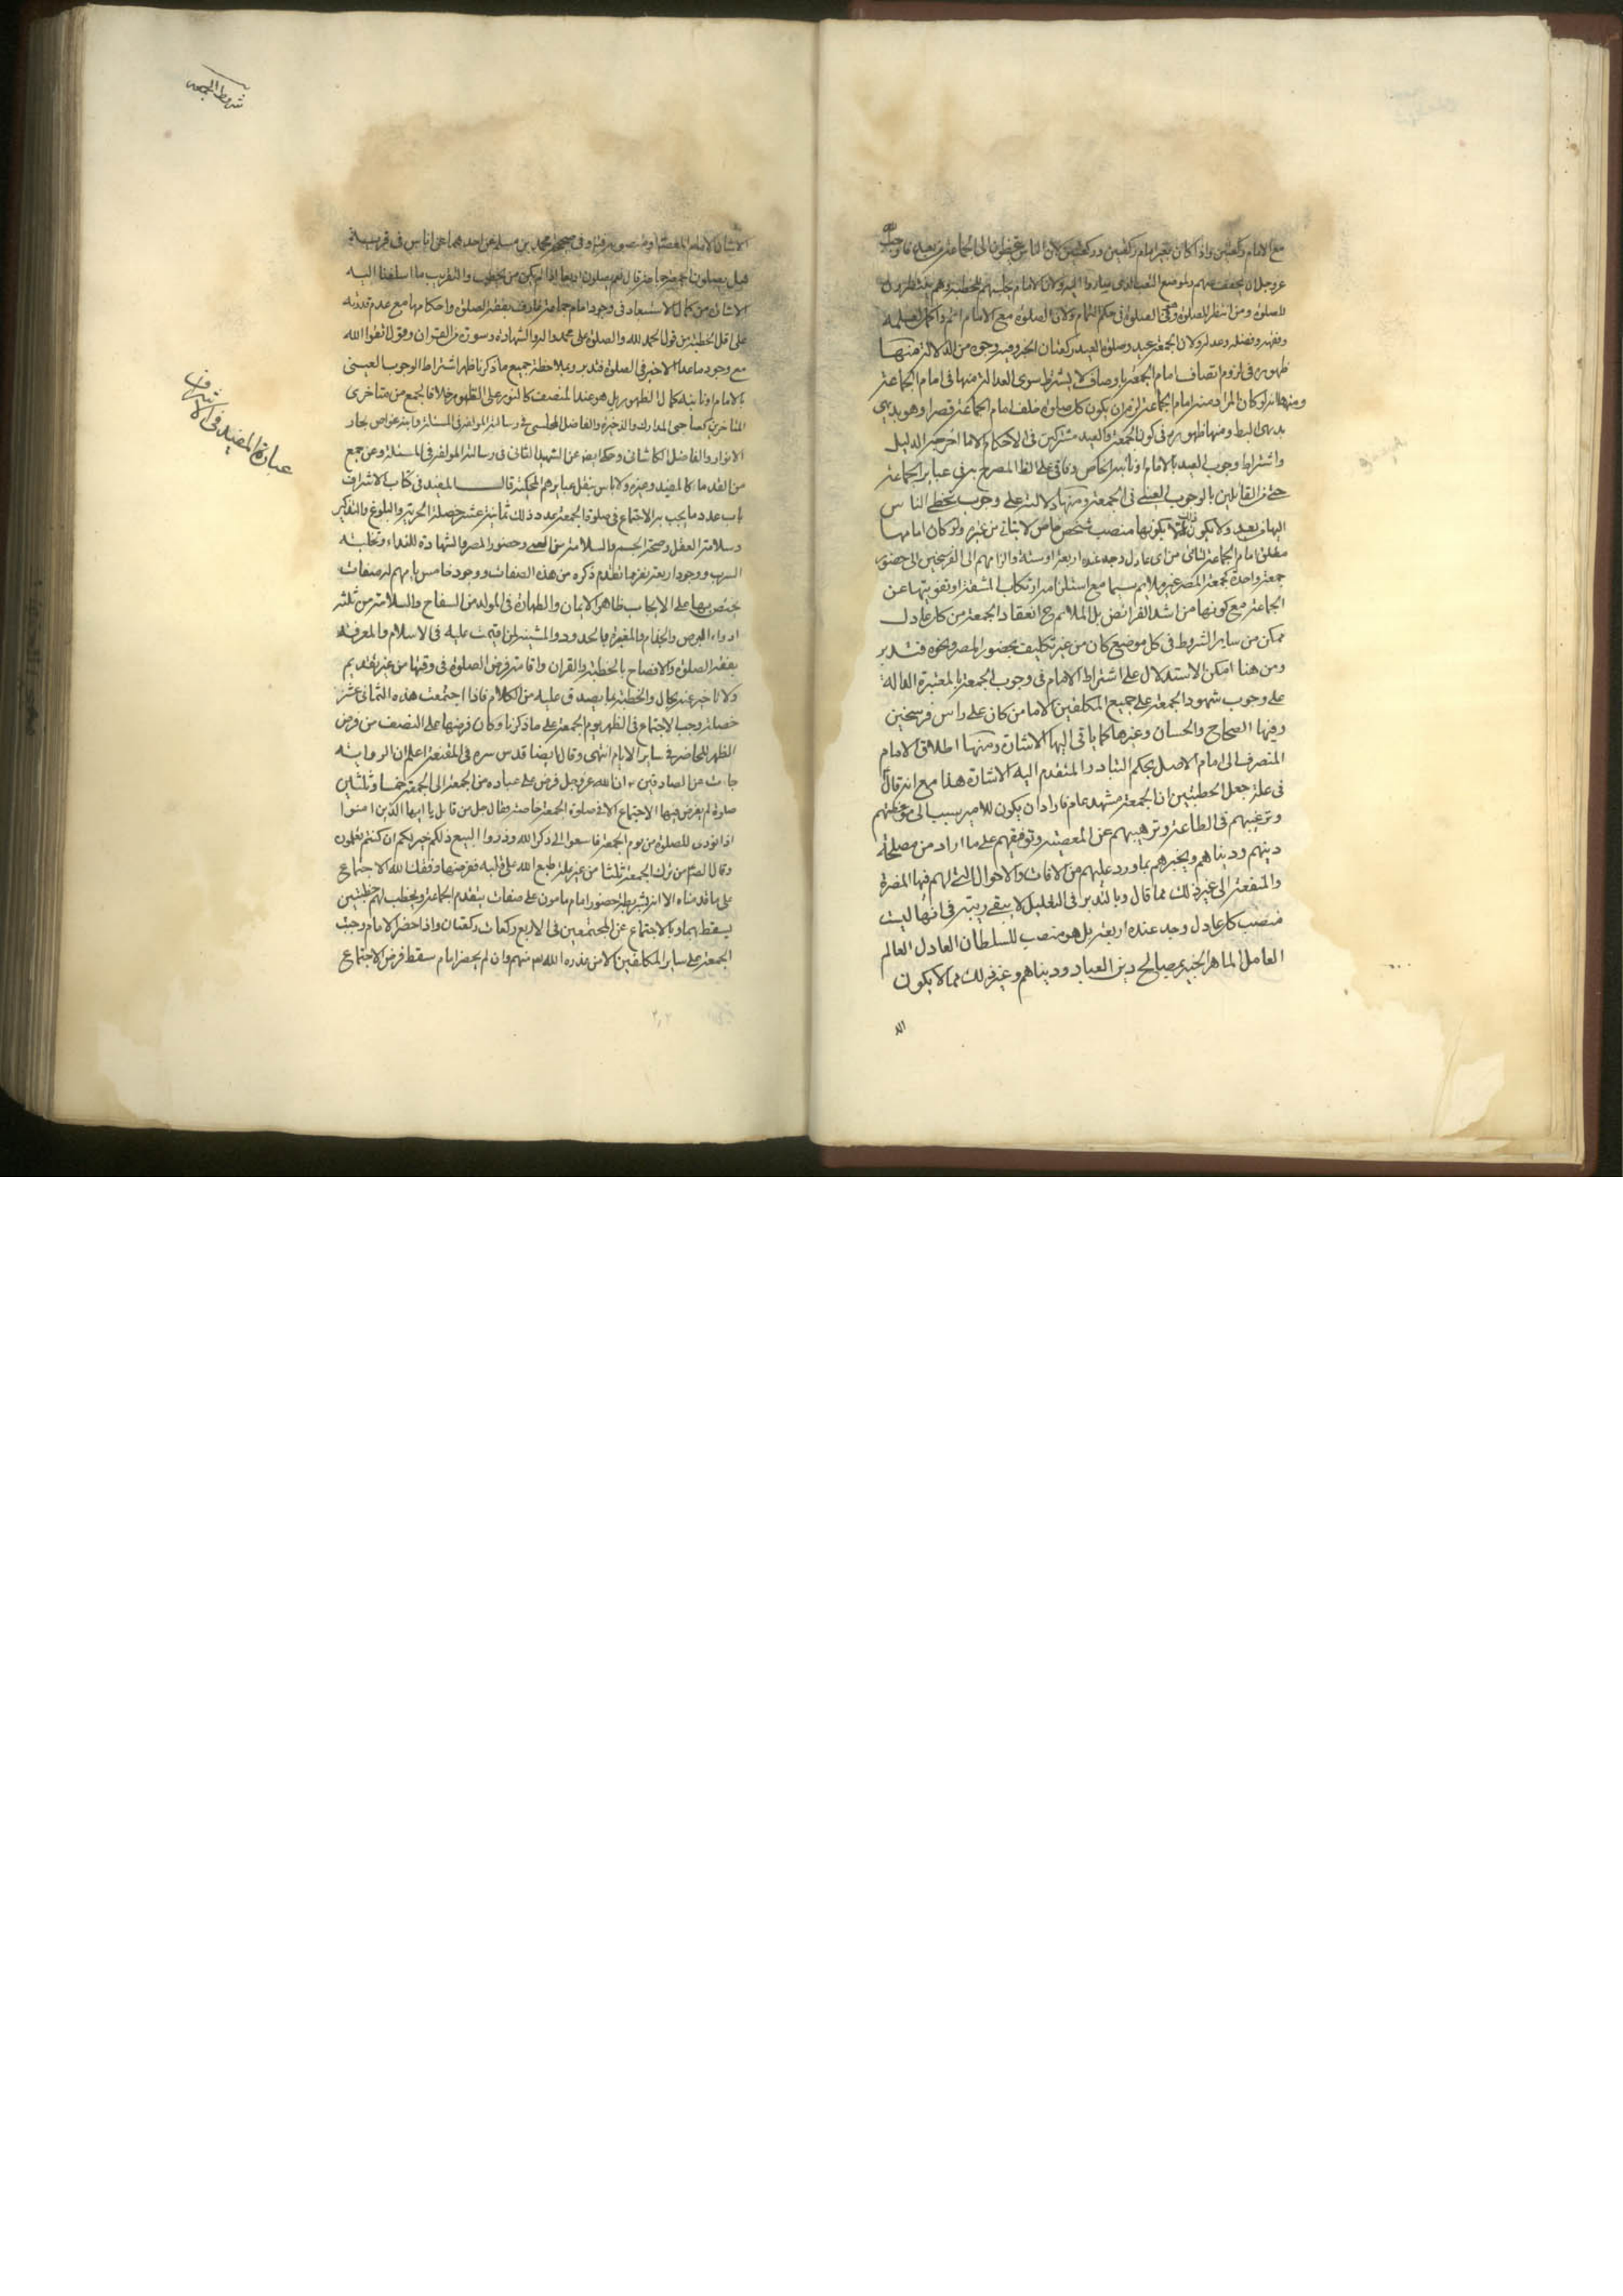 مع الامام ركعتين واذا كان بغير امام ركعتين وركعتين لان الناس يتخطون الى الجمعة من بعد فاحب الله
عز وجل ان يخفف عنهم لموضع التعب الذى صاروا اليه ولان الامام يحبسهم للخطبة وهم منتظرون
للصلوة ومن انتظر الصلوة فهو فى الصلوة فى حكم التمام ولان الصلوة مع الامام اتم واكمل لعلمه
وفقهه وفضله وعدله ولان الجمعة عيد وصلوة العيد ركعتان الخبر وفيه وجوه من الدلالة منها
ظهوره فى لزوم اتصاف امام الجمعة باوصاف لا يشترط سوى العدالة منها فى امام الجماعة
ومنها انه لو كان المراد منه امام الجماعة لزم ان يكون كل صلوة خلف امام الجماعة قصرا وهو بديهى
البط ومنها ظهوره فى كون الجمعة والعيد مشتركين فى الاحكام الا ما اخرجه الدليل
واشتراط وجوب العيد بالامام او نائبه الخاص وفاقى على الظ المصرح به فى عباير الجماعة
حتى من القائلين بالوجوب العينى فى الجمعة ومنها دلالته على وجوب تخطى الناس
اليها من بعيد ولا يكون ذلك الا بكونها منصب شخص خاص لا يتاتى من غيره ولو كان امامها
مطلق امام الجماعة لتاتى من اى عادل وجد عنده اربعة او ستة والزامهم الى الفرسخين الى حضور
جمعة واحدة كجمعة المصر غير ملائم سيما مع استلزامه ارتكاب المشقة او تفويتها عن
الجماعة مع كونها من اشد الفرائض بل الملائم ح انعقاد الجمعة من كل عادل
ممكن من ساير الشروط فى كل موضع كان من غير تكليف بحضور المصر ونحوه فتدبر
ومن هنا امكن الاستدلال على اشتراط الامام فى وجوب الجمعة بالمعتبرة الدالة
على وجوب شهود الجمعة على جميع المكلفين الا من كان على راس فرسخين
وفيها الصحاح والحسان وغيرها كما ياتى اليها الاشارة ومنها اطلاق الامام
المنصرف الى امام الاصل بحكم التبادر المتقدم اليه الاشارة هذا مع انه قال
فى علة جعل الخطبتين ان الجمعة مشهد عام فاراد ان يكون للامير سبب الى موعظتهم
وترغيبهم فى الطاعة وترهيبهم عن المعصية وتوفيقهم على ما اراد من مصلحة
دينهم ودنياهم ويخبرهم بما ورد عليهم من الافات والاحوال التى لهم فيها المضرة
والمنفعة الى غير ذلك مما قال وبالتدبر فى التعليل لا يبقى ريبة فى انها ليست
منصب كل عادل وجد عنده اربعة بل هو منصب للسلطان العادل العالم
العامل الماهر الخبير بمصالح دين العباد ودنياهم وغير ذلك مما لا يكون
الا
شروط الجمعه
الا شان الامام المعصوم او منصوبه وفى صحيحة محمد بن مسلم عن احدهما عن اناس فى قرية
هل يصلون الجمعة جماعة قال نعم يصلون اربعا اذا لم يكن من يخطب والتقريب ما اسلفنا اليه
الاشارة من كمال الاستبعاد فى وجود امام جماعة عارف بفقه الصلوة واحكامها مع عدم قدرته
على اقل الخطبة من قول الحمد لله والصلوة على محمد واله والشهادة وسورة من القران وقول اتقوا الله
مع وجود ما عدا الاخير فى الصلوة فتدبر وبملاحظة جميع ما ذكرنا ظهر اشتراط الوجوب العينى
بالامام او نائبه كمال الظهور بل هو عند المنصف كالنور على الطور خلافا لجمع من متاخرى
المتاخرين كصاحبى المدارك والذخيرة والفاضل المجلسى فى رسالته المؤلفة فى المسئلة وابنه غواص بحار
الانوار والفاضل الكاشانى وحكايته عن الشهيد الثانى فى رسالته المؤلفة فى المسئلة وعن جمع
من القدماء كالمفيد وغيره ولا باس بنقل عبايرهم المحكية قال المفيد فى كتاب الاشراف
باب عدد ما يجب به الاجتماع فى صلوة الجمعة عدد ذلك ثمانية عشر خصلة الحرية والبلوغ والتذكير
وسلامة العقل وصحة الجسم والسلامة من العمى وحضور المصر والشهادة للنداء وتخلية
السرب ووجود اربعة نفر بما تقدم ذكره من هذه الصفات ووجود خامس يامهم له صفات
يختص بها على الايجاب ظاهر الايمان والطهارة فى المولد من السفاح والسلامة من ثلثة
ادواء البرص والجذام والمعرة بالحدود المشينة لمن اقيمت عليه فى الاسلام والمعرفة
بفقه الصلوة والافصاح بالخطبة والقران واقامة فرض الصلوة فى وقتها من غير تقديم
ولا تاخير عنه بحال والخطبة بما يصدق عليه من الكلام فاذا اجتمعت هذه الثمانى عشر
خصلة وجب الاجتماع فى الظهر يوم الجمعة على ما ذكرنا وكان فرضها على النصف من فرض
الظهر للحاضر فى ساير الايام انتهى وقال ايضا قدس سره فى المقنعة اعلم ان الرواية
جاءت عن الصادقين ان الله عز وجل فرض على عباده من الجمعة الى الجمعة خمسا وثلثين
صلوة لم يفرض فيها الاجتماع الا فى صلوة الجمعة خاصة فقال جل من قائل يا ايها الذين امنوا
اذا نودى للصلوة من يوم الجمعة فاسعوا الى ذكر الله وذروا البيع ذلكم خير لكم ان كنتم تعلمون
وقال الص من ترك الجمعة ثلثا من غير علة طبع الله على قلبه ففرضها وفقك الله الاجتماع
على ما قدمناه الا انه بشريطة حضور امام مامون على صفات يتقدم الجماعة ويخطب لهم خطبتين
يسقط بهما وبالاجتماع عن المجتمعين فى الاربع ركعات ركعتان واذا حضر الامام وجبت
الجمعة على ساير المكلفين الا من عذره الله منهم وان لم يحضر امام سقط فرض الاجتماع
عبارة المفيد فى الاشراف